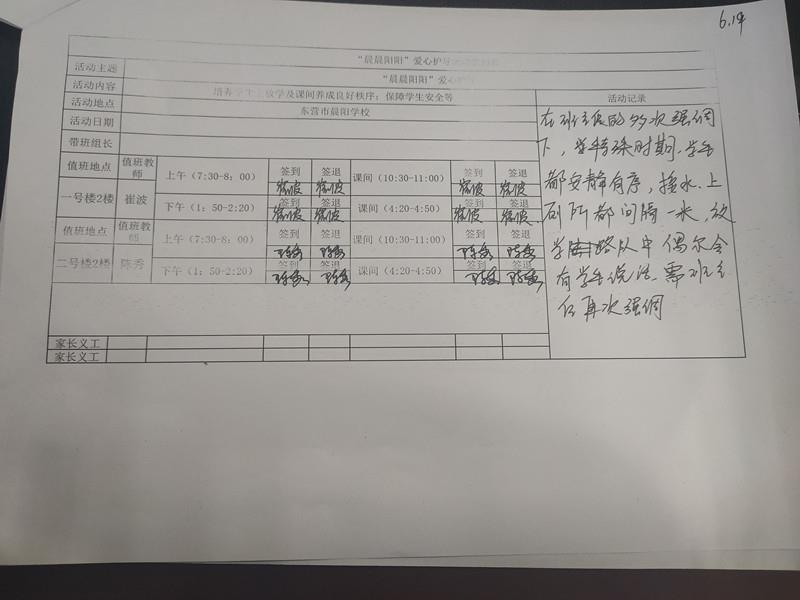 6.19
"晨晨阳阳"爱心护
活动主题 "晨晨阳阳"爱心护
活动内容 培养学生上放学及课间养成良好秩序；保障学生安全等 活动记录
活动地点 东营市晨阳学校
活动日期
带班组长
值班地点 值班教师 上午（7:30-8：00） 签到 签退 课间（10:30-11:00） 签到 签退
一号楼2楼 崔波 下午（1：50-2:20） 签到 签退 课间（4:20-4:50） 签到 签退
值班地点 值班教师 上午（7:30-8：00） 签到 签退 课间（10:30-11:00） 签到 签退
二号楼2楼 陈秀 下午（1：50-2:20） 签到 签退 课间（4:20-4:50） 签到 签退
家长义工
家长义工
在班级的多次强调
下，学特殊时期.学生
都安静有序，接水.上
厕所都间隔一米，放
学 路队中偶尔会
有学生说话.需班主
任再次强调